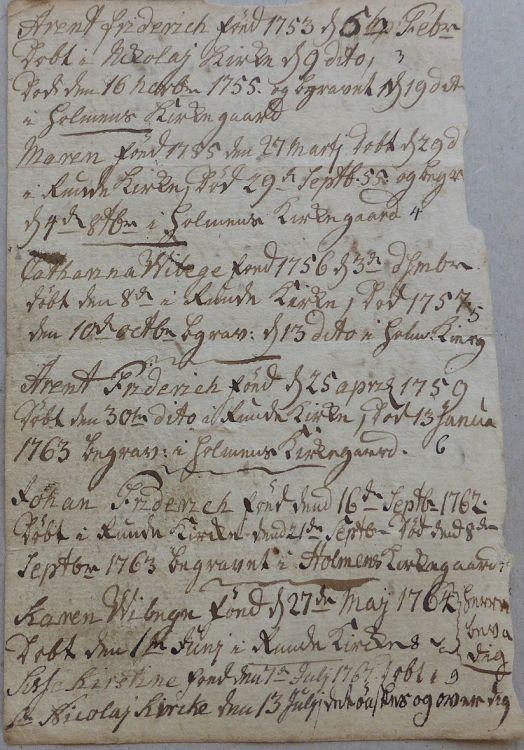 Arent friderich fönd 1753 d 6 Febr
Döbt i Nickolaj Kirke d 9 dito, 3
Död den 16 novbr 1755. og begravet d 19 dit
i Holmens Kirkegaard
Maren fönd 1755 den 27 Martj Döbt d 29 d
i Runde Kirke, Död 29 Septb 55 og begr
d 4de 8tbr i Holmens Kirkegaard 4
Catharina Wibege fönd 1756 d 3de
döbt den 8de i Runde Kirke, Död 1757 5
den 10de octbr begrav: d 13 dito i Holm: Kierg
Arent Friderich fönd d 25 april 1759
Döbt den 30te dito i Runde Kirke, Död 13 Janua
1763 begrav: i Holmens Kirkegaard. 6
Johan Friderich fönd dend 16de Septbr 1762
Döbt i Runde Kircke dend 21de Septbr Död dend 8de
Septbr 1763 begravet i Holmens Kirkegaard 7
Karen Wibege fönd d 27de Maj 1764 herren
Döbt den 1te Junj i Runde Kircke 8 beva
dig
Kirstine fönd den 7de Julj 1767 döbt i 9
Nicolaj Kircke den 13 Julj, og over dig